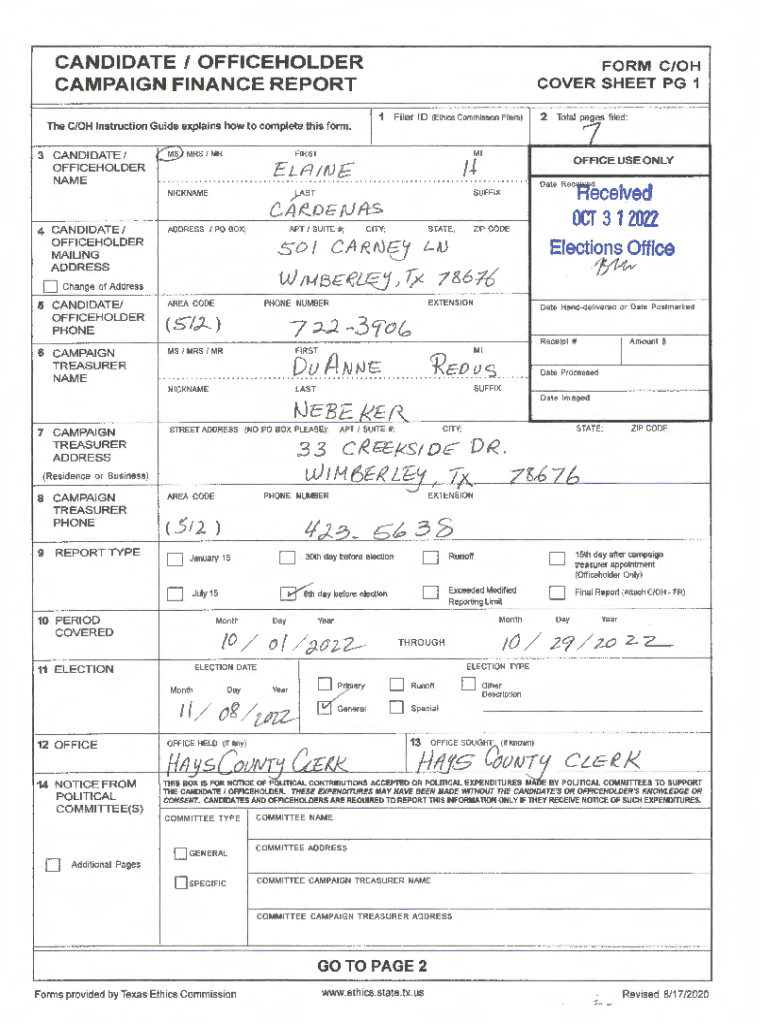 CANDIDATE / OFFICEHOLDER
CAMPAIGN FINANCE REPORT
FORM C/OH
COVER SHEET PG 1
The C/OH Instruction Guide explains how to complete this form.
1 Filer ID (Ethics Commission Filers)
2 Total pages filed:
7
3 CANDIDATE / OFFICEHOLDER NAME
MS / MRS / MR FIRST MI
ELAINE H
NICKNAME LAST SUFFIX
CARDENAS
OFFICE USE ONLY
Date Received
Received
OCT 31 2022
Elections Office
4 CANDIDATE / OFFICEHOLDER MAILING ADDRESS
Change of Address
ADDRESS / PO BOX; APT / SUITE #; CITY; STATE; ZIP CODE
501 CARNEY LN
WIMBERLEY, TX 78676
5 CANDIDATE/ OFFICEHOLDER PHONE
AREA CODE PHONE NUMBER EXTENSION
(512) 722-3906
Date Hand-delivered or Date Postmarked
Receipt # Amount $
Date Processed
Date Imaged
6 CAMPAIGN TREASURER NAME
MS / MRS / MR FIRST MI
DUANNE REDUS
NICKNAME LAST SUFFIX
NEBEKER
7 CAMPAIGN TREASURER ADDRESS
(Residence or Business)
STREET ADDRESS (NO PO BOX PLEASE); APT / SUITE #; CITY; STATE; ZIP CODE
33 CREEKSIDE DR.
WIMBERLEY, TX 78676
8 CAMPAIGN TREASURER PHONE
AREA CODE PHONE NUMBER EXTENSION
(512) 423-5638
9 REPORT TYPE
January 15 30th day before election Runoff 15th day after campaign treasurer appointment (Officeholder Only)
July 15 8th day before election Exceeded Modified Reporting Limit Final Report (Attach C/OH - FR)
10 PERIOD COVERED
Month Day Year Month Day Year
10 / 01 / 2022 THROUGH 10 / 29 / 2022
11 ELECTION
ELECTION DATE ELECTION TYPE
Month Day Year
11 / 08 / 2022
Primary Runoff Other Description
General Special
12 OFFICE
OFFICE HELD (if any)
HAYS COUNTY CLERK
13 OFFICE SOUGHT (if known)
HAYS COUNTY CLERK
14 NOTICE FROM POLITICAL COMMITTEE(S)
THIS BOX IS FOR NOTICE OF POLITICAL CONTRIBUTIONS ACCEPTED OR POLITICAL EXPENDITURES MADE BY POLITICAL COMMITTEES TO SUPPORT
THE CANDIDATE / OFFICEHOLDER. THESE EXPENDITURES MAY HAVE BEEN MADE WITHOUT THE CANDIDATE'S OR OFFICEHOLDER'S KNOWLEDGE OR
CONSENT. CANDIDATES AND OFFICEHOLDERS ARE REQUIRED TO REPORT THIS INFORMATION ONLY IF THEY RECEIVE NOTICE OF SUCH EXPENDITURES.
Additional Pages
COMMITTEE TYPE
GENERAL
SPECIFIC
COMMITTEE NAME
COMMITTEE ADDRESS
COMMITTEE CAMPAIGN TREASURER NAME
COMMITTEE CAMPAIGN TREASURER ADDRESS
GO TO PAGE 2
Forms provided by Texas Ethics Commission www.ethics.state.tx.us Revised 8/17/2020